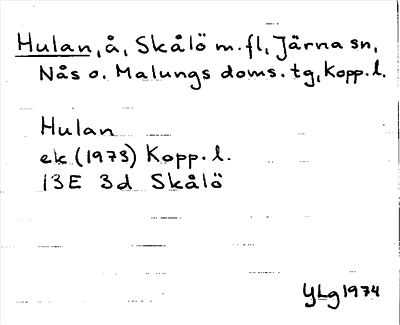 Hulan, å, Skålö m.fl, Järna sn,
Nås o. Malungs doms.tg, Kopp.l.
Hulan
ek (1973) Kopp.l.
13E 3d Skålö
YLg 1974